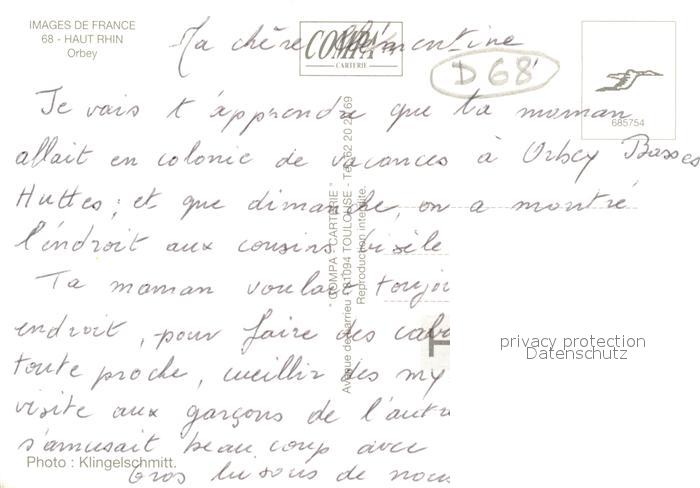 IMAGES DE FRANCE
68 - HAUT RHIN
Orbey
Ma chère Clémentine
COMPA
CARTERIE
D 68
685754
Je vais t'apprendre que ta maman
allait en colonie de vacances à Orbey Basses
Huttes; et que dimanche, on a montré
l'endroit aux cousins Gisèle
Ta maman voulait toujou
endroit, pour faire des caba
toute proche, cueillir des my
visite aux garçons de l'autr
s'amusait beaucoup avec
Gros bisous de nous
" COMPA - CARTERIE "
81094 TOULOUSE - Tél. 62 20 69
Reproduction interdite.
Photo : Klingelschmitt.
privacy protection
Datenschutz